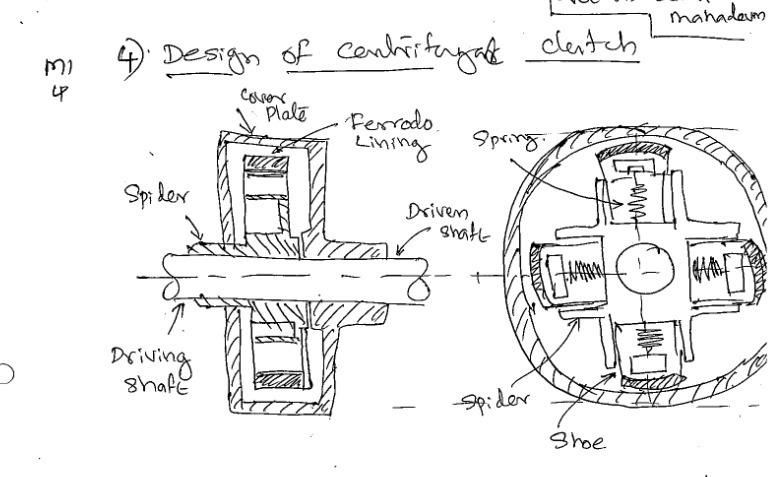 mahadevan
M1
4) Design of centrifugal clutch
4P
Cover
Plate
Ferrodo
Lining
Spring
Spider
Driven
Shaft
Driving
Shaft
Spider
Shoe